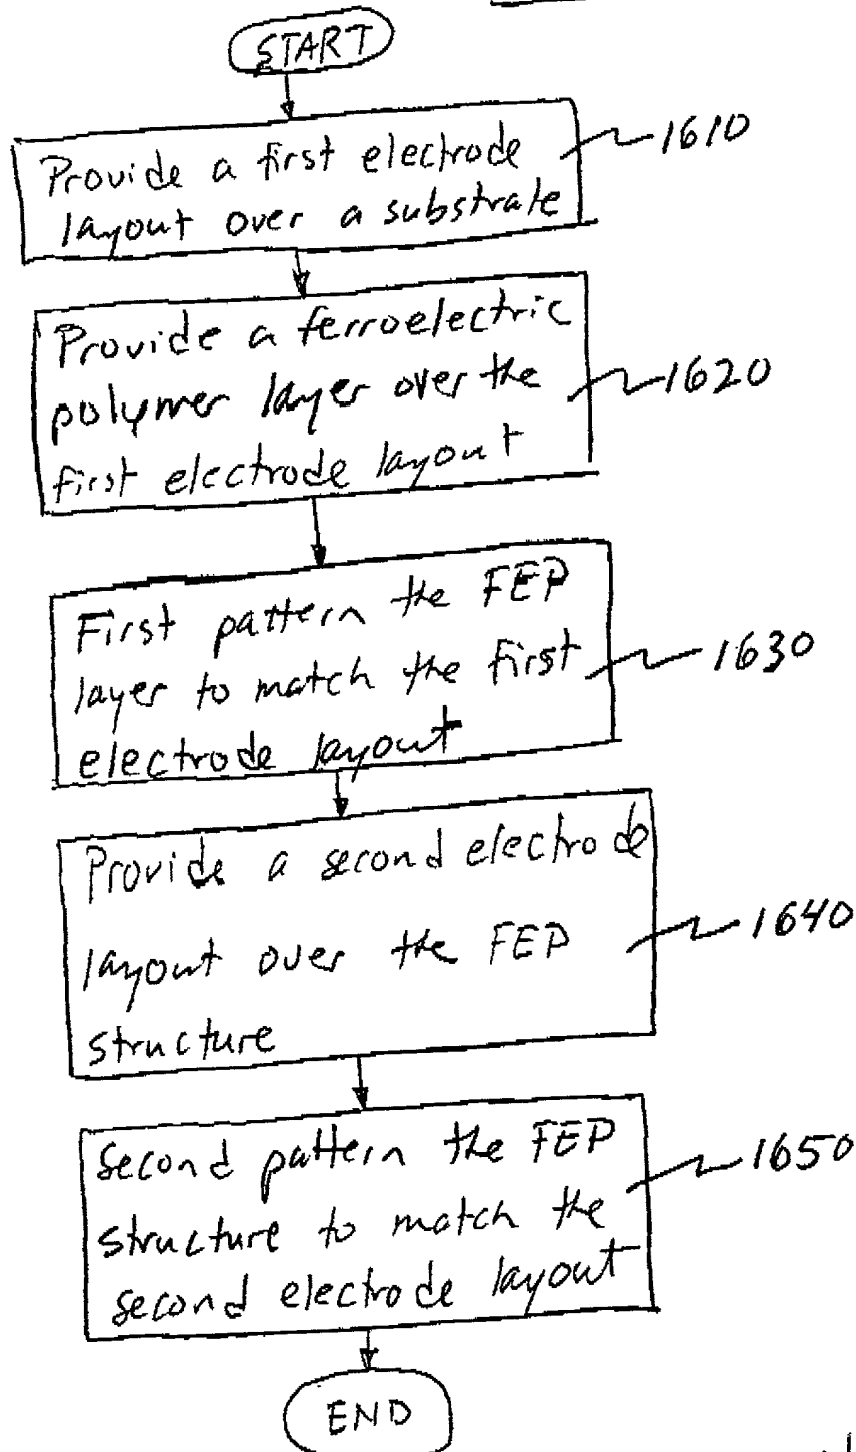 START
Provide a first electrode
layout over a substrate
1610
Provide a ferroelectric
polymer layer over the
first electrode layout
1620
First pattern the FEP
layer to match the first
electrode layout
1630
Provide a second electrode
layout over the FEP
structure
1640
Second pattern the FEP
structure to match the
second electrode layout
1650
END